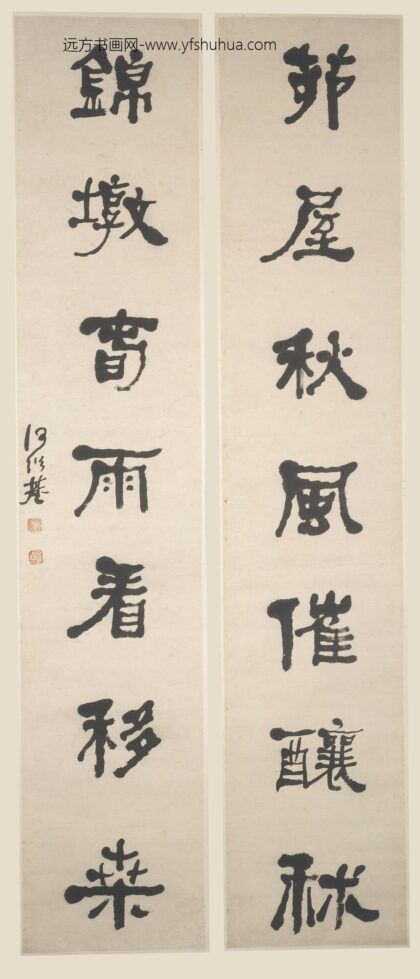 远方书画网-www.yfshuhua.com
茆屋秋風催釀秫
錦墩旾雨看移桒
何紹基